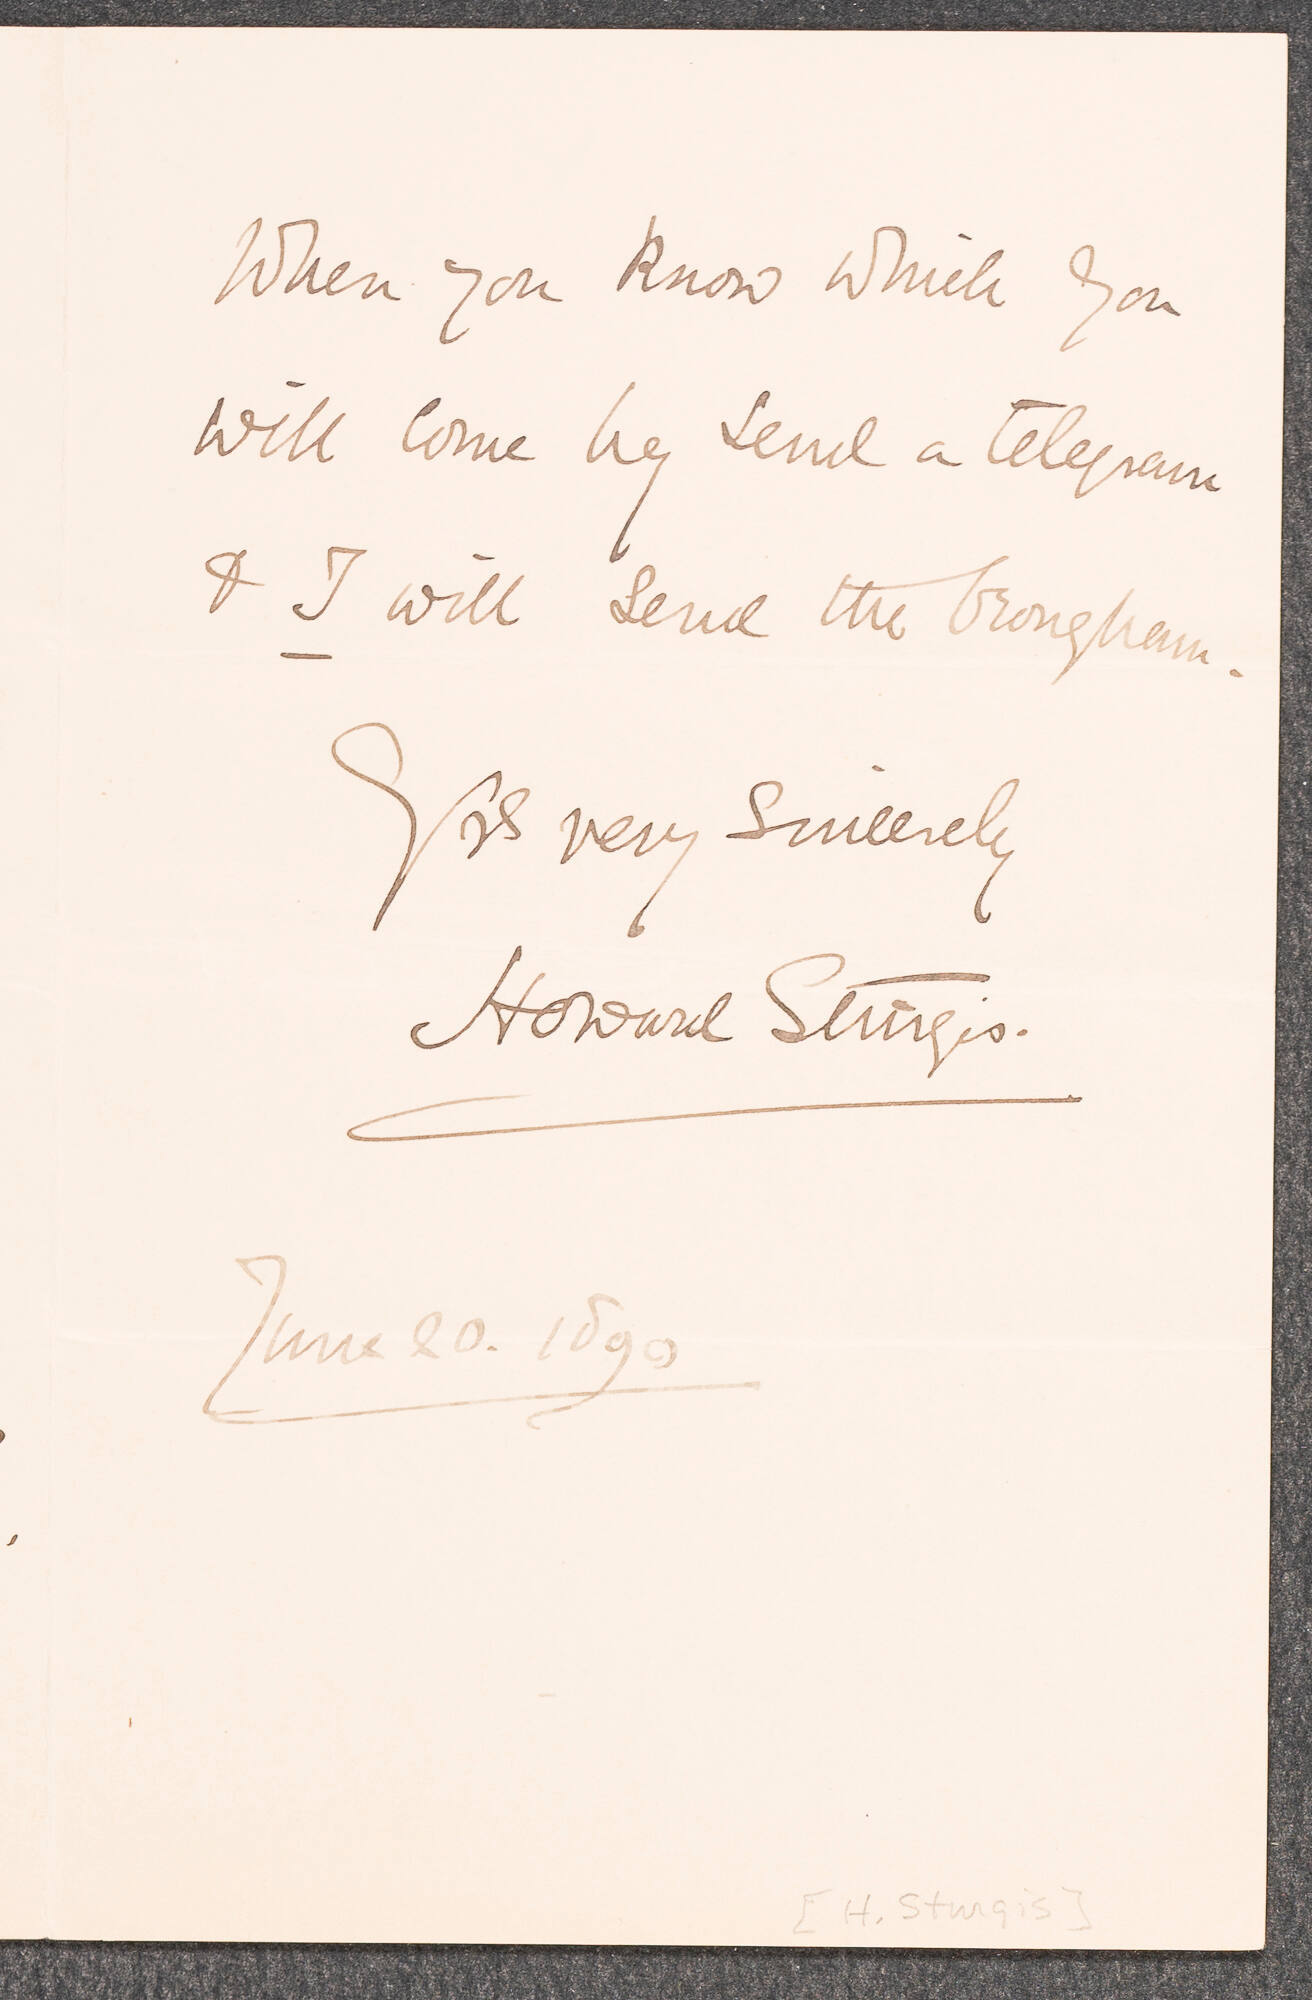 When you know which you
will come by send a telegram
& I will send the brougham.
Yrs very sincerely
Howard Sturgis.
June 20. 1890
[H. Sturgis]